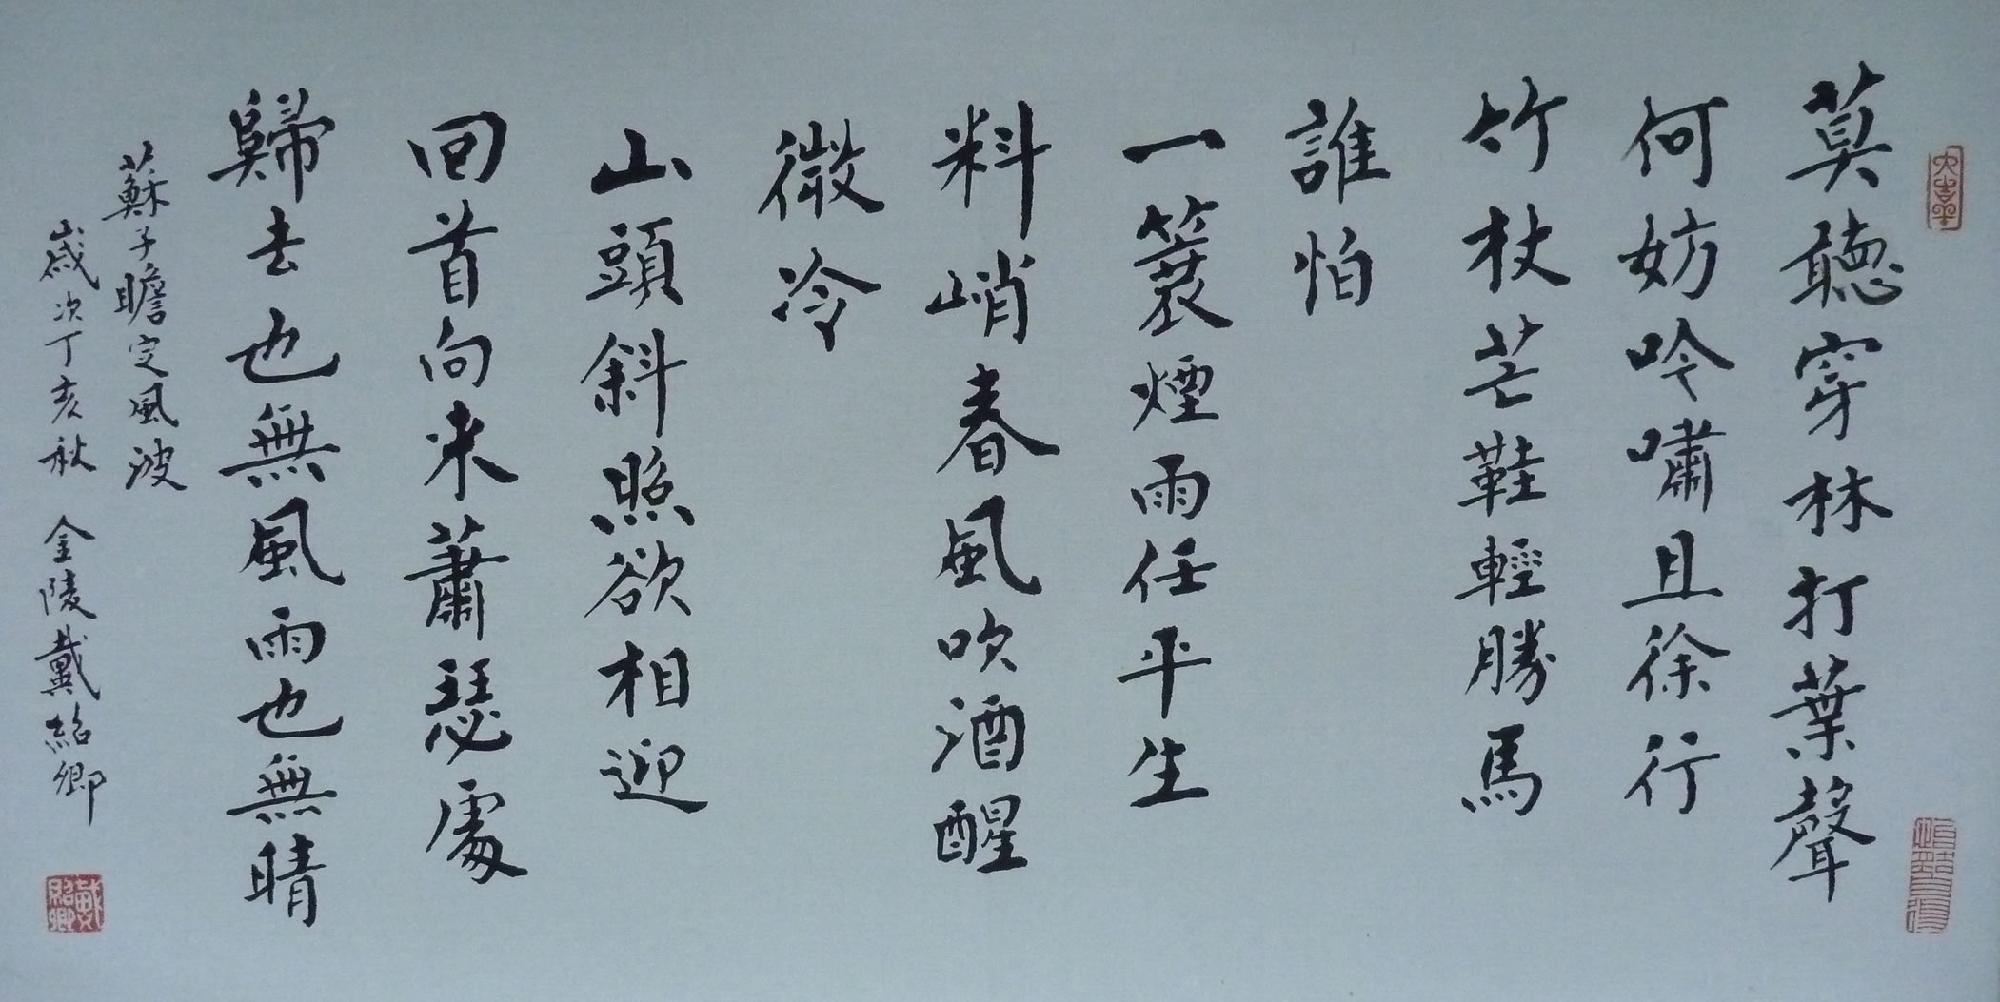 莫聽穿林打葉聲
何妨吟嘯且徐行
竹杖芒鞋輕勝馬
誰怕
一蓑煙雨任平生
料峭春風吹酒醒
微冷
山頭斜照欲相迎
回首向来蕭瑟處
歸去也無風雨也無晴
蘇子瞻定風波
歲次丁亥秋 金陵戴紹卿
戴紹卿